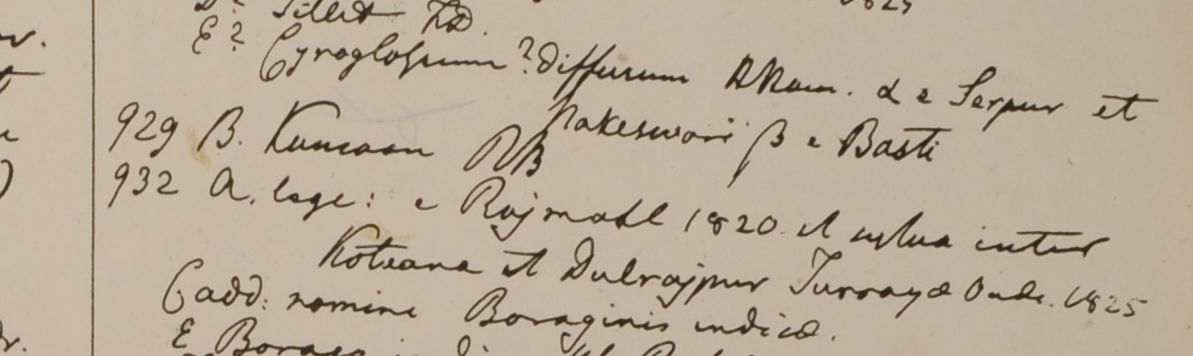 D? Sillet HD. 1825
E? Cynoglossum? diffusum HHam. α e Serpur et
Nakeswori β e Basti
929 B. Kumaon RB
932 A. lege: e Rajmahl 1820 et sylva inter
Koteana et Dulrajpur Turraya Oude. 1825
C add: nomini Boraginis indicæ.
E Borago